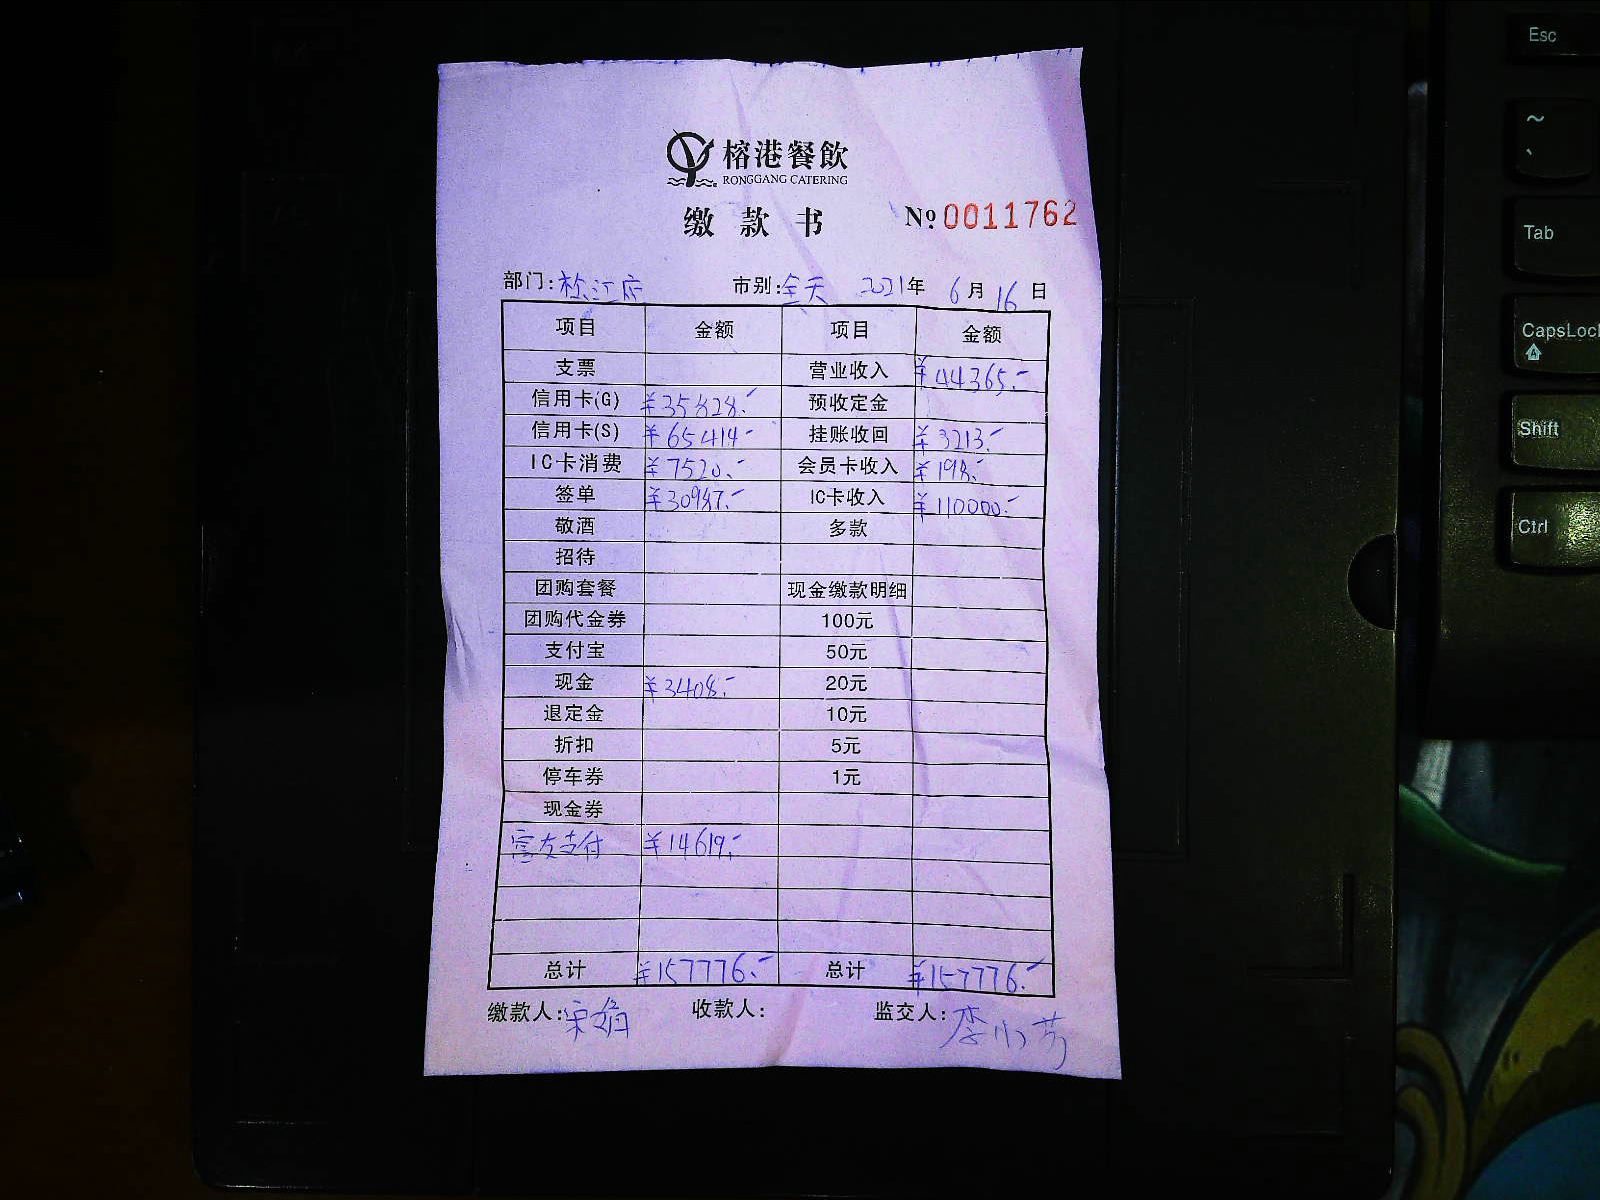 Esc
~
、
Tab
CapsLoc
Shift
Ctrl
榕港餐飲
RONGGANG CATERING
缴款书 №0011762
部门:松江府 市别:全天 2021年 6月16日
项目 金额 项目 金额
支票 营业收入 ¥44365.-
信用卡(G) ¥35828.- 预收定金
信用卡(S) ¥65414- 挂账收回 ¥3213.-
IC卡消费 ¥7520.- 会员卡收入 ¥198.-
签单 ¥30987.- IC卡收入 ¥110000.-
敬酒 多款
招待
团购套餐 现金缴款明细
团购代金券 100元
支付宝 50元
现金 ¥3408.- 20元
退定金 10元
折扣 5元
停车券 1元
现金券
富友支付 ¥14619.-
总计 ¥157776.- 总计 ¥157776.-
缴款人: 收款人: 监交人: